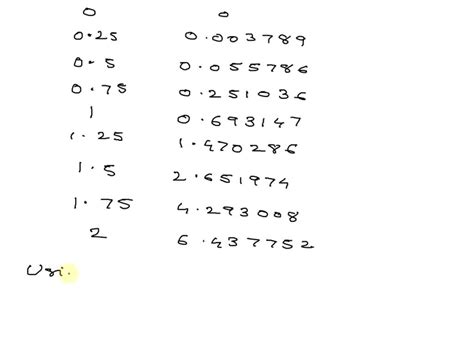 0 0
0.25 0.003789
0.5 0.055786
0.75 0.251036
1 0.693147
1.25 1.470286
1.5 2.651974
1.75 4.293008
2 6.437752
Usi.